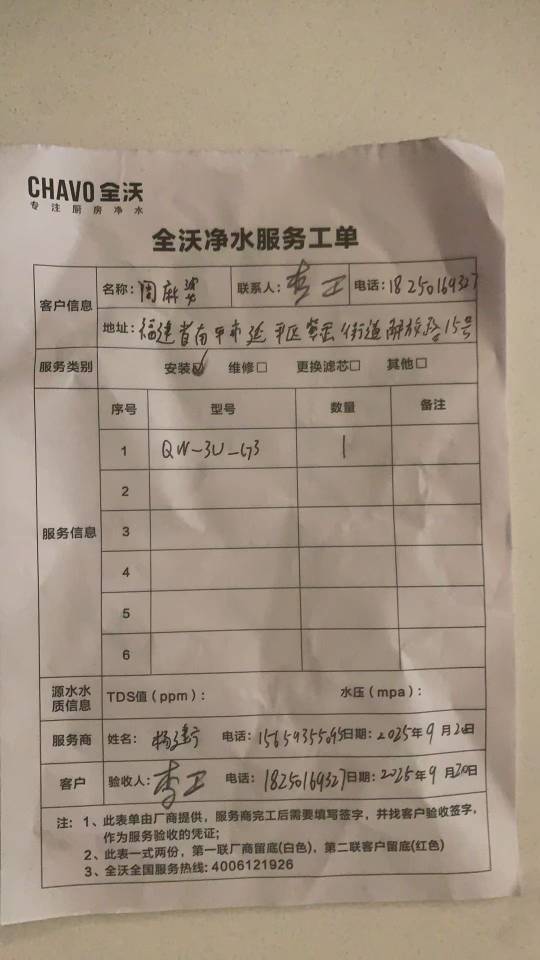 CHAVO 全沃
专注厨房净水
全沃净水服务工单
客户信息 名称: 周 联系人: 李工 电话: 18250169327
地址: 福建省南平市延平区紫云街道解放路15号
服务类别 安装☑ 维修□ 更换滤芯□ 其他□
服务信息
序号 型号 数量 备注
1 QW-3U-G3 1
2
3
4
5
6
源水水质信息 TDS值（ppm）: 水压（mpa）:
服务商 姓名: 杨建 电话: 15659355095 日期: 2025年9月20日
客户 验收人: 李工 电话: 18250169327 日期: 2025年9月20日
注: 1、此表单由厂商提供，服务商完工后需要填写签字，并找客户验收签字，
作为服务验收的凭证;
2、此表一式两份，第一联厂商留底(白色)，第二联客户留底(红色)
3、全沃全国服务热线: 4006121926